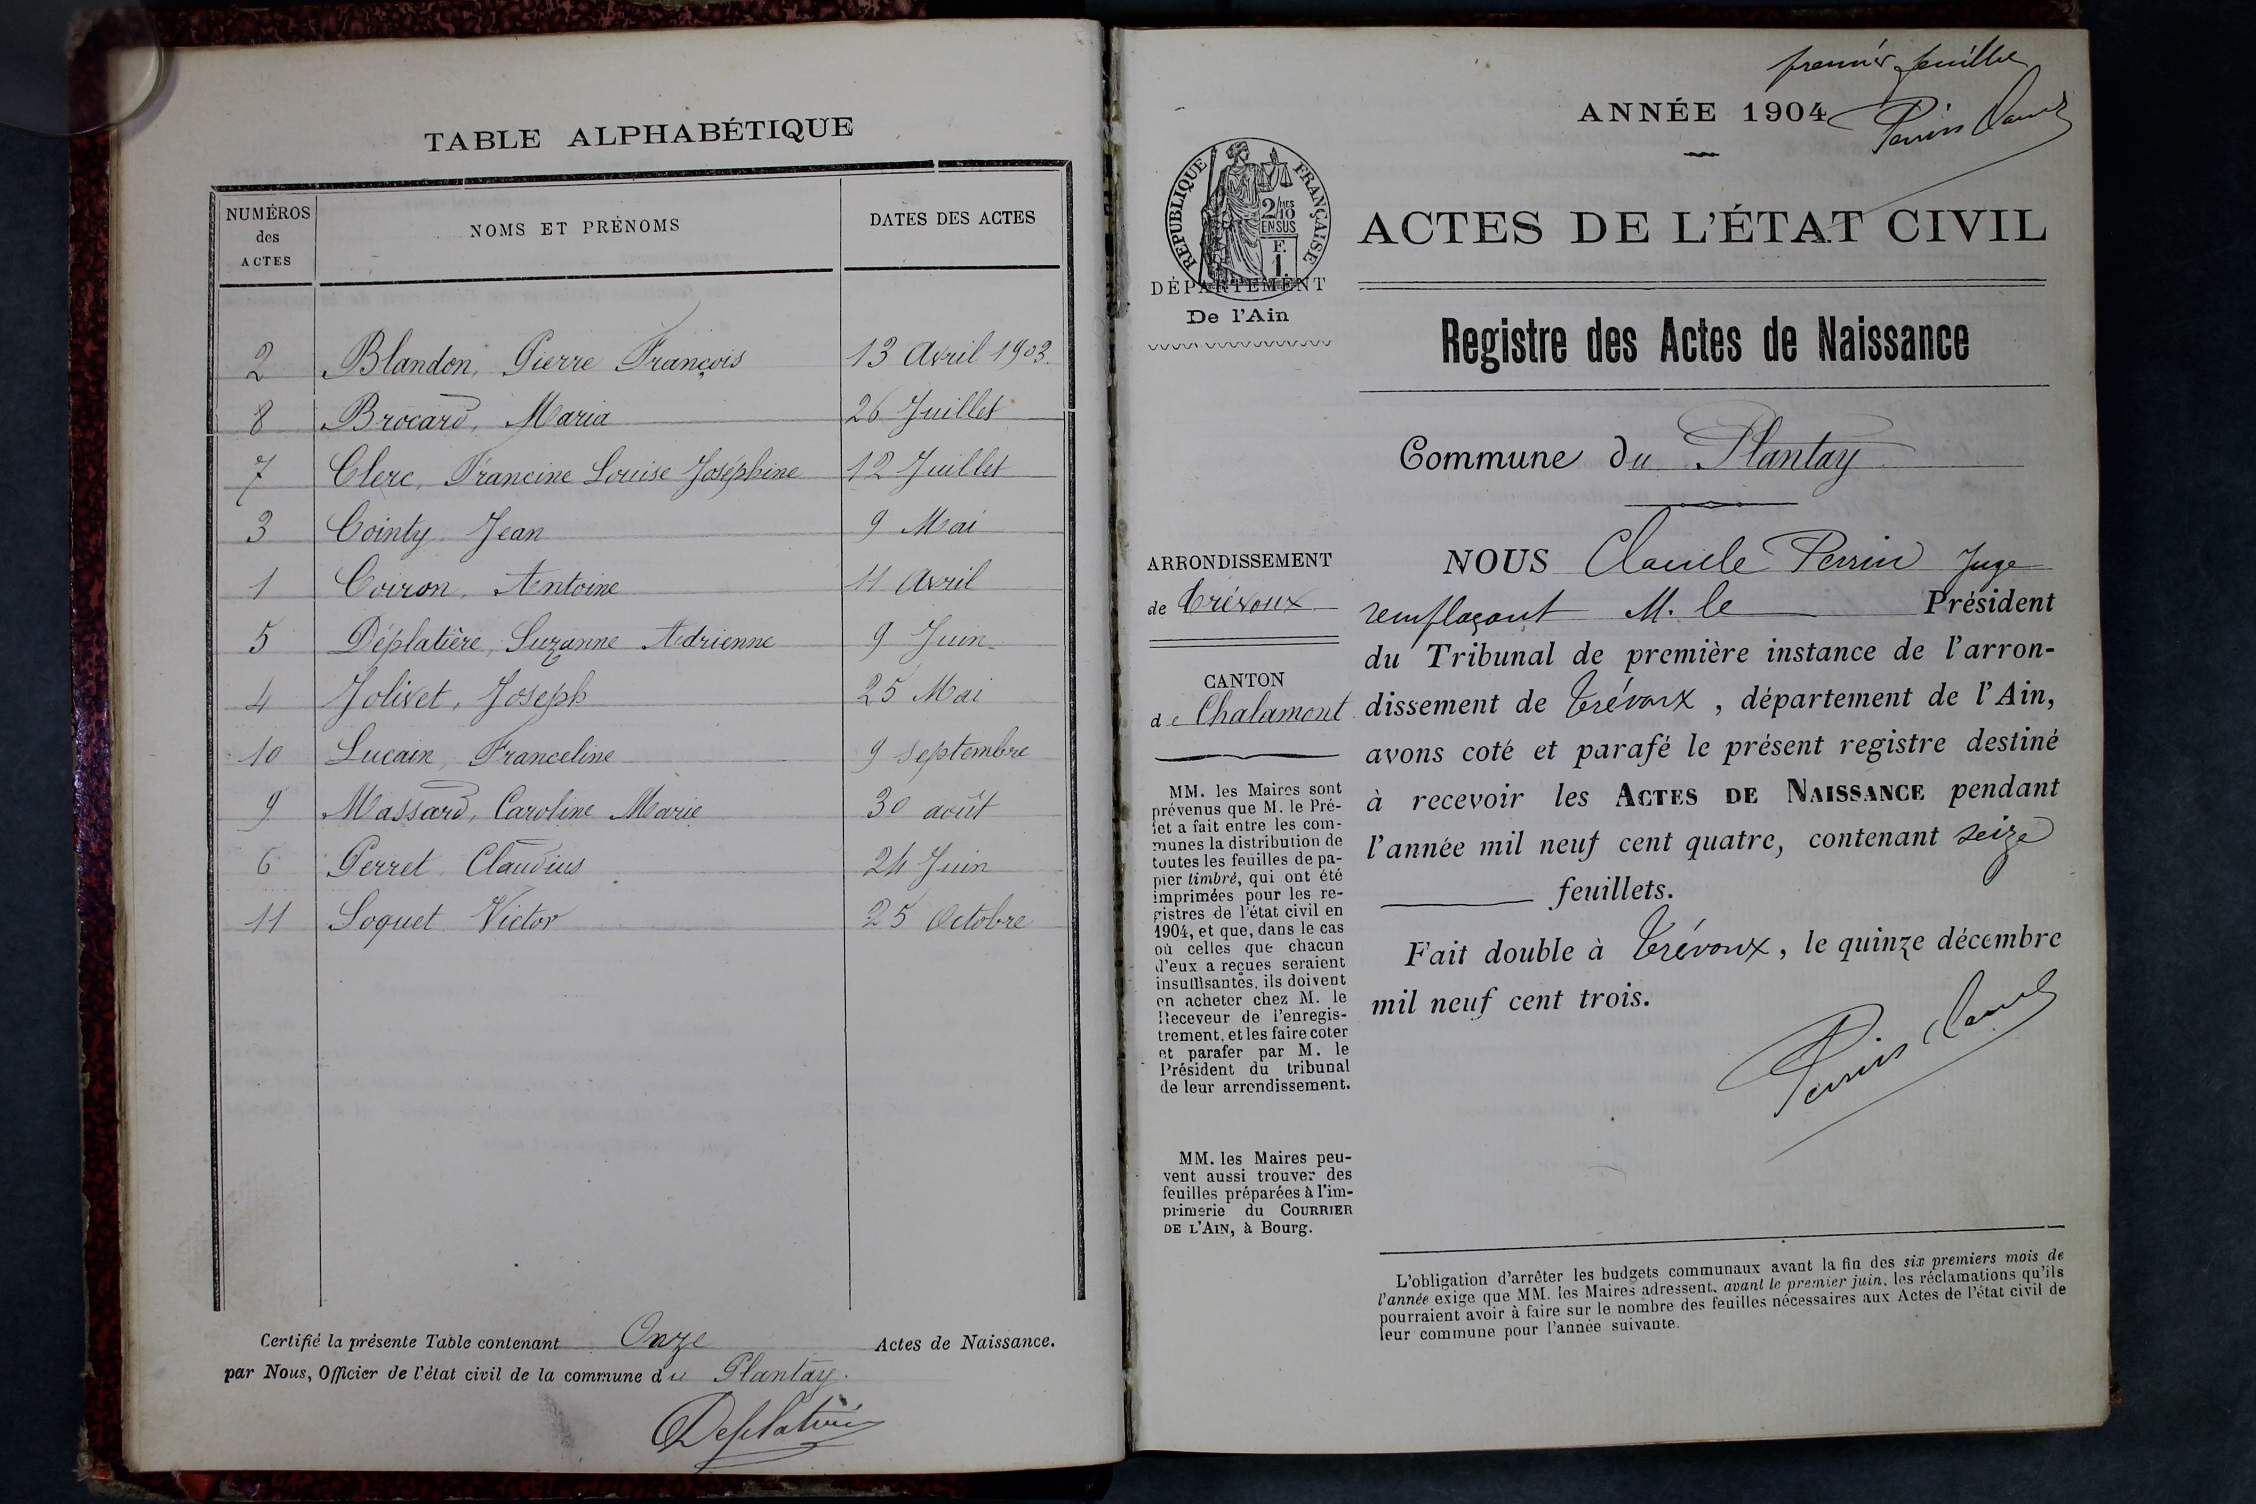 TABLE ALPHABÉTIQUE
NUMÉROS
des
ACTES
NOMS ET PRÉNOMS
DATES DES ACTES
2 Blandon, Pierre François 13 Avril 1903.
8 Brocard, Maria 26 Juillet
7 Clerc, Francine Louise Joséphine 12 Juillet
3 Cointy Jean 9 Mai
1 Coiron, Antoine 11 Avril
5 Déplatière, Suzanne Adrienne 9 Juin
4 Jolivet, Joseph 25 Mai
10 Lucain, Franceline 9 Septembre
9 Massard, Caroline Marie 30 août
6 Perret Claudius 24 Juin
11 Soquet Victor 25 Octobre
Certifié la présente Table contenant Onze Actes de Naissance.
par Nous, Officier de l'état civil de la commune du Plantay.
Deplatière
premier feuillet
ANNÉE 1904
Perrin Claude
RÉPUBLIQUE FRANÇAISE
2/10 MES
EN SUS
F.
1.
DÉPARTEMENT
De l'Ain
ACTES DE L'ÉTAT CIVIL
Registre des Actes de Naissance
Commune du Plantay
ARRONDISSEMENT
de Trévoux
CANTON
de Chalamont
MM. les Maires sont
prévenus que M. le Pré-
fet a fait entre les com-
munes la distribution de
toutes les feuilles de pa-
pier timbré, qui ont été
imprimées pour les re-
gistres de l'état civil en
1904, et que, dans le cas
où celles que chacun
d'eux a reçues seraient
insuffisantes, ils doivent
en acheter chez M. le
Receveur de l'enregis-
trement, et les faire coter
et parafer par M. le
Président du tribunal
de leur arrondissement.
MM. les Maires peu-
vent aussi trouver des
feuilles préparées à l'im-
primerie du COURRIER
DE L'AIN, à Bourg.
NOUS Claude Perrin Juge
remplaçant M. le Président
du Tribunal de première instance de l'arron-
dissement de Trévoux, département de l'Ain,
avons coté et parafé le présent registre destiné
à recevoir les ACTES DE NAISSANCE pendant
l'année mil neuf cent quatre, contenant seize
feuillets.
Fait double à Trévoux, le quinze décembre
mil neuf cent trois.
Perrin Claude
L'obligation d'arrêter les budgets communaux avant la fin des six premiers mois de
l'année exige que MM. les Maires adressent, avant le premier juin, les réclamations qu'ils
pourraient avoir à faire sur le nombre des feuilles nécessaires aux Actes de l'état civil de
leur commune pour l'année suivante.